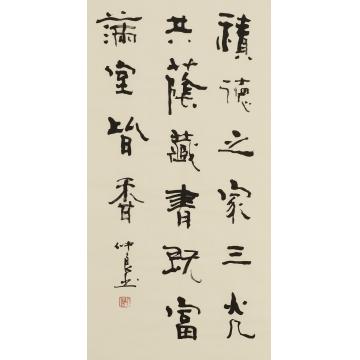 積德之家三光
共蔭藏書既富
滿室皆香
仲良